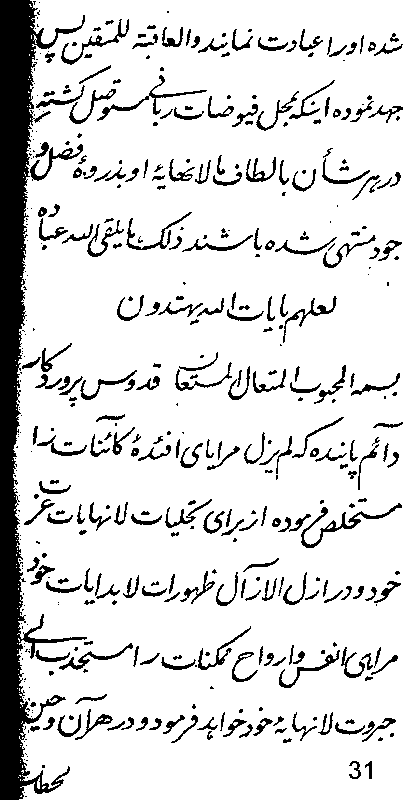 شده او را عبادت نمایند والعاقبة للمتقین پس
جهد نموده اینکه بمحل فیوضات ربانی متوصل گشته
در هر شأن بالطاف مالانهایهٔ او بذروهٔ فضل و
جود منتهی شده باشند ذلک ما یلقی الله عباده
لعلهم بایات الله یهتدون
بسمه المحبوب المتعال المستعان قدوس پروردگار
دائم پاینده که لم یزل مرایای افئدهٔ کائنات را
مستخلص فرموده از برای تجلیات لانهایات عزت
خود و در ازل الازآل ظهورات لا بدایات خود
مرایای انفس و ارواح ممکنات را مستجذب الی
جبروت لانهایهٔ خود خواهد فرمود و در هر آن و حین
لحظات
31